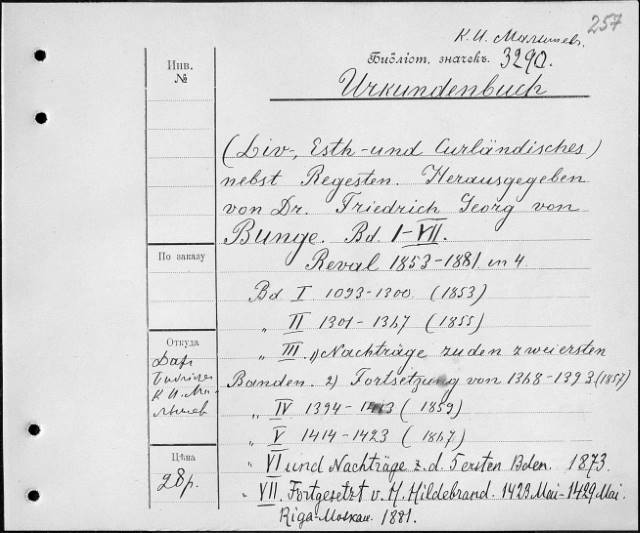 257
К. И. Малышев.
Библіот. значекъ. 3290.
Инв.
№
Urkundenbuch
(Liv-, Esth- und Curländisches)
nebst Regesten. Herausgegeben
von Dr. Friedrich Georg von
Bunge. Bd. I-VII.
По заказу
Reval 1853-1881. in 4.
Bd I 1093-1300. (1853)
„ II 1301-1367 (1855)
Откуда
Даръ
К. И. Ма-
лышев
„ III. 1) Nachträge zu den zwei ersten
Banden. 2) Fortsetzung von 1368-1393 (1857)
„ IV 1394-1413 (1859)
„ V 1414-1423 (1867)
Цѣна
28 р.
„ VI und Nachträge z. d. 5 ersten Bden. 1873.
„ VII. Fortgesetzt v. H. Hildebrand. 1423 Mai-1429 Mai.
Riga-Moskau. 1881.